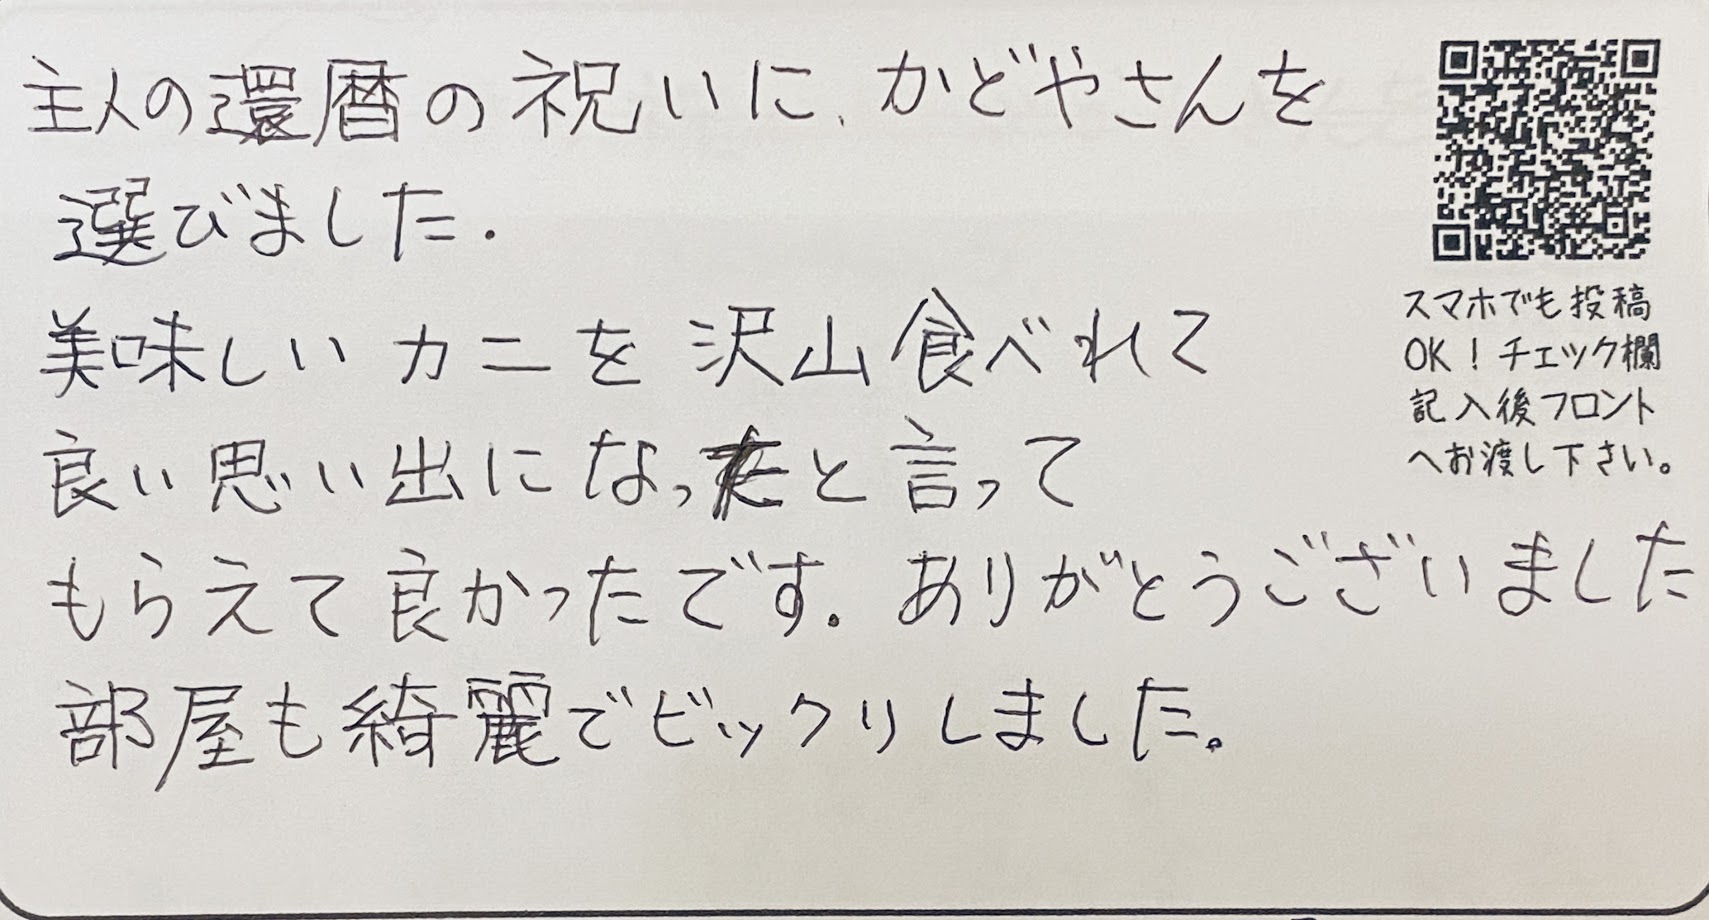 主人の還暦の祝いに、かどやさんを
選びました.
美味しいカニを沢山食べれて
良い思い出になったと言って
もらえて良かったです. ありがとうございました
部屋も綺麗でビックリしました。
スマホでも投稿
OK！チェック欄
記入後フロント
へお渡し下さい。